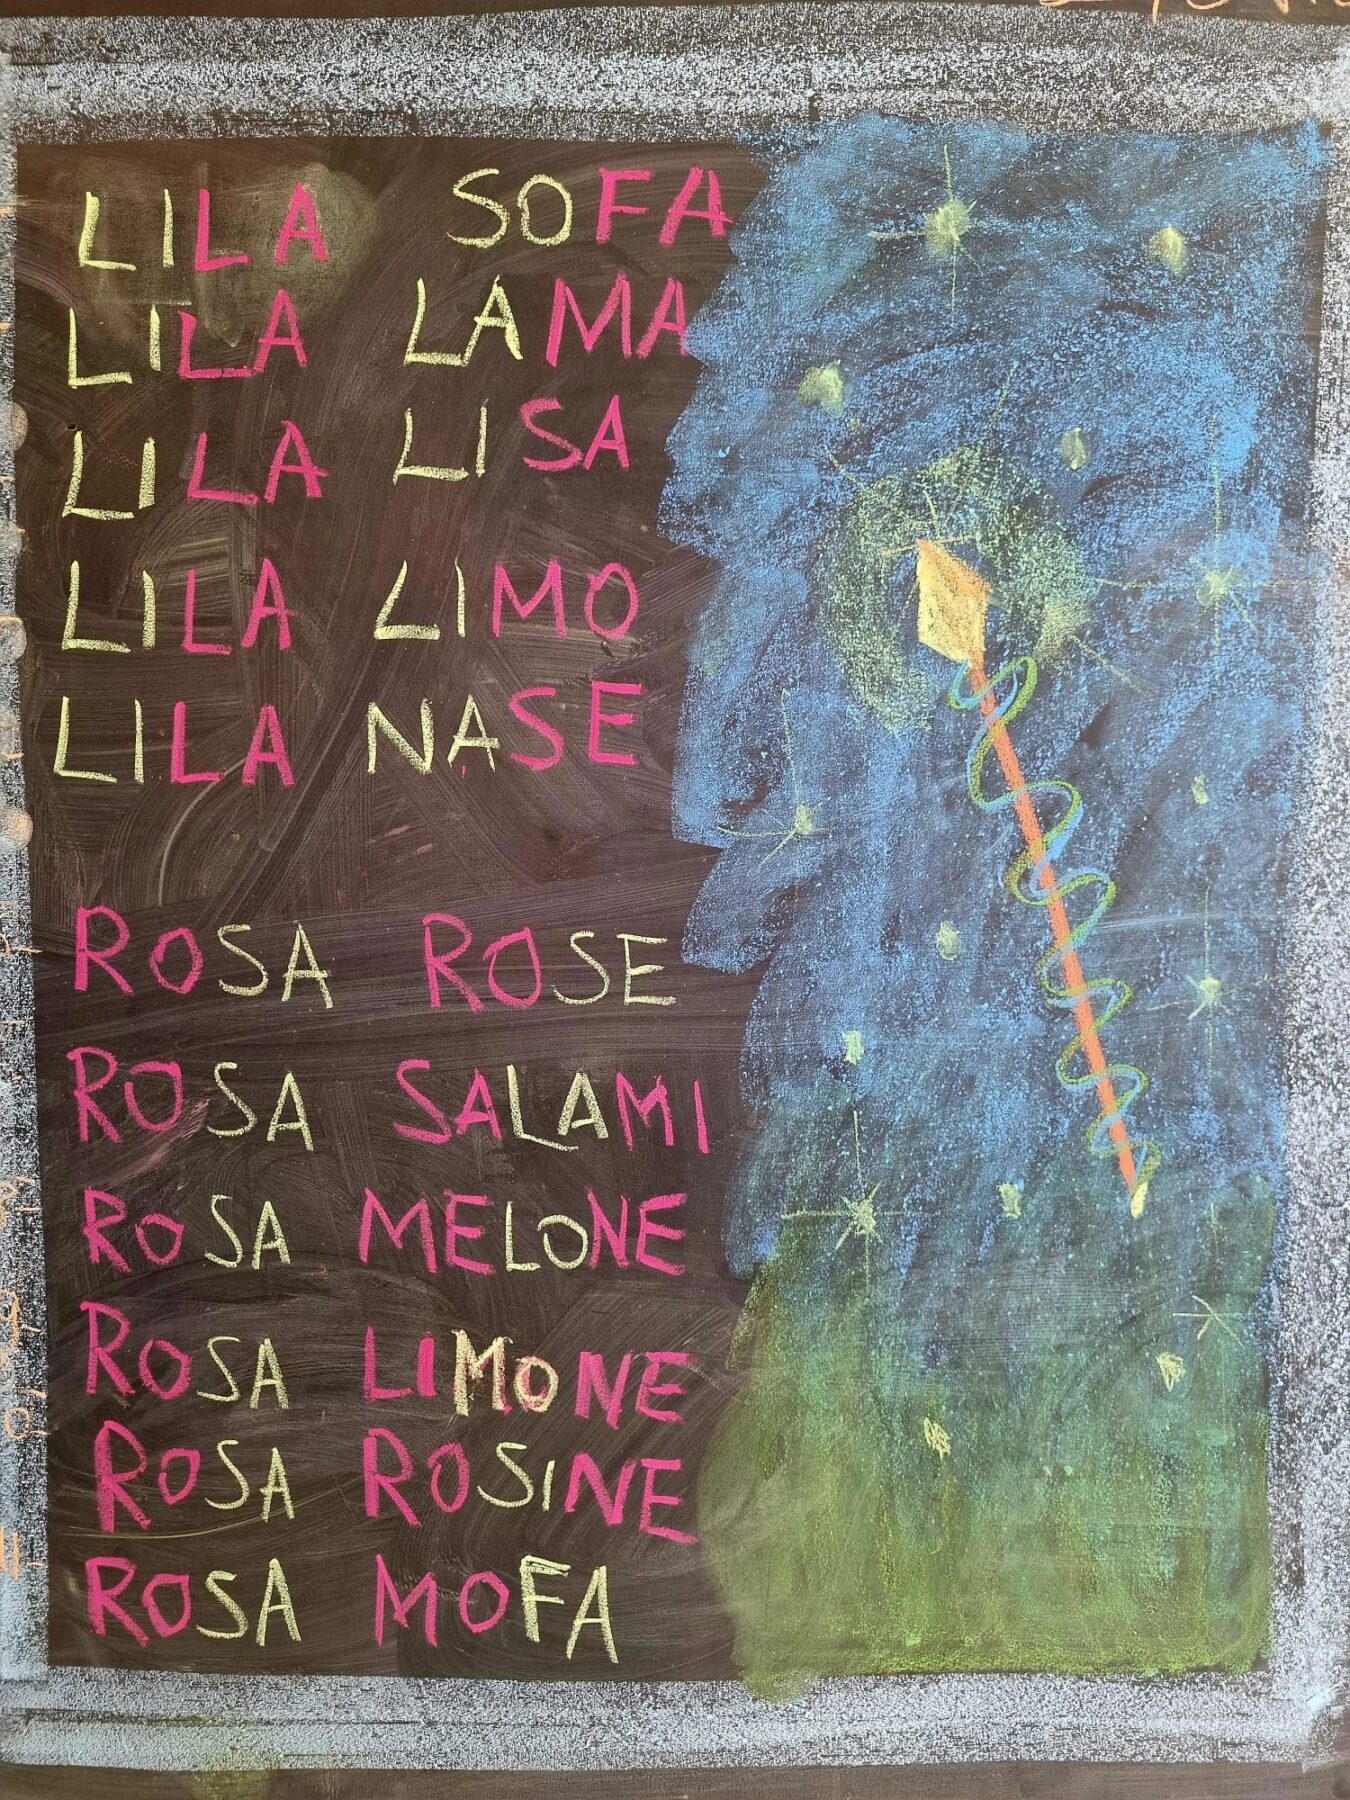 LILA SOFA
LILA LAMA
LILA LISA
LILA LIMO
LILA NASE
ROSA ROSE
ROSA SALAMI
ROSA MELONE
ROSA LIMONE
ROSA ROSINE
ROSA MOFA